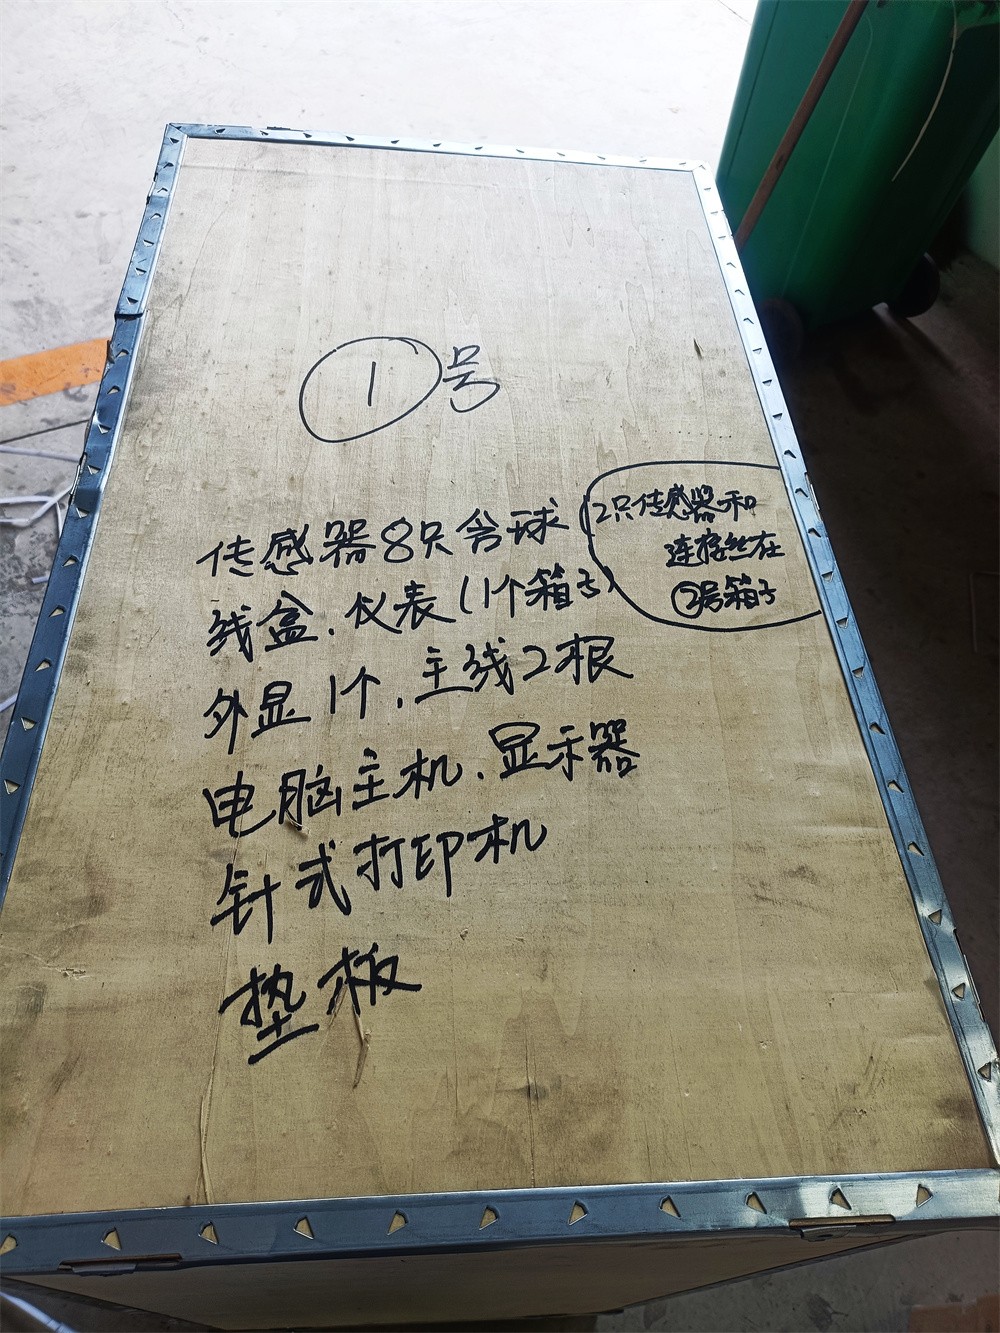 ①号
传感器8只含球
线盒.仪表(1个箱子)
外显1个.主线2根
电脑主机.显示器
针式打印机
垫板
2只传感器和
连接丝在
②号箱子